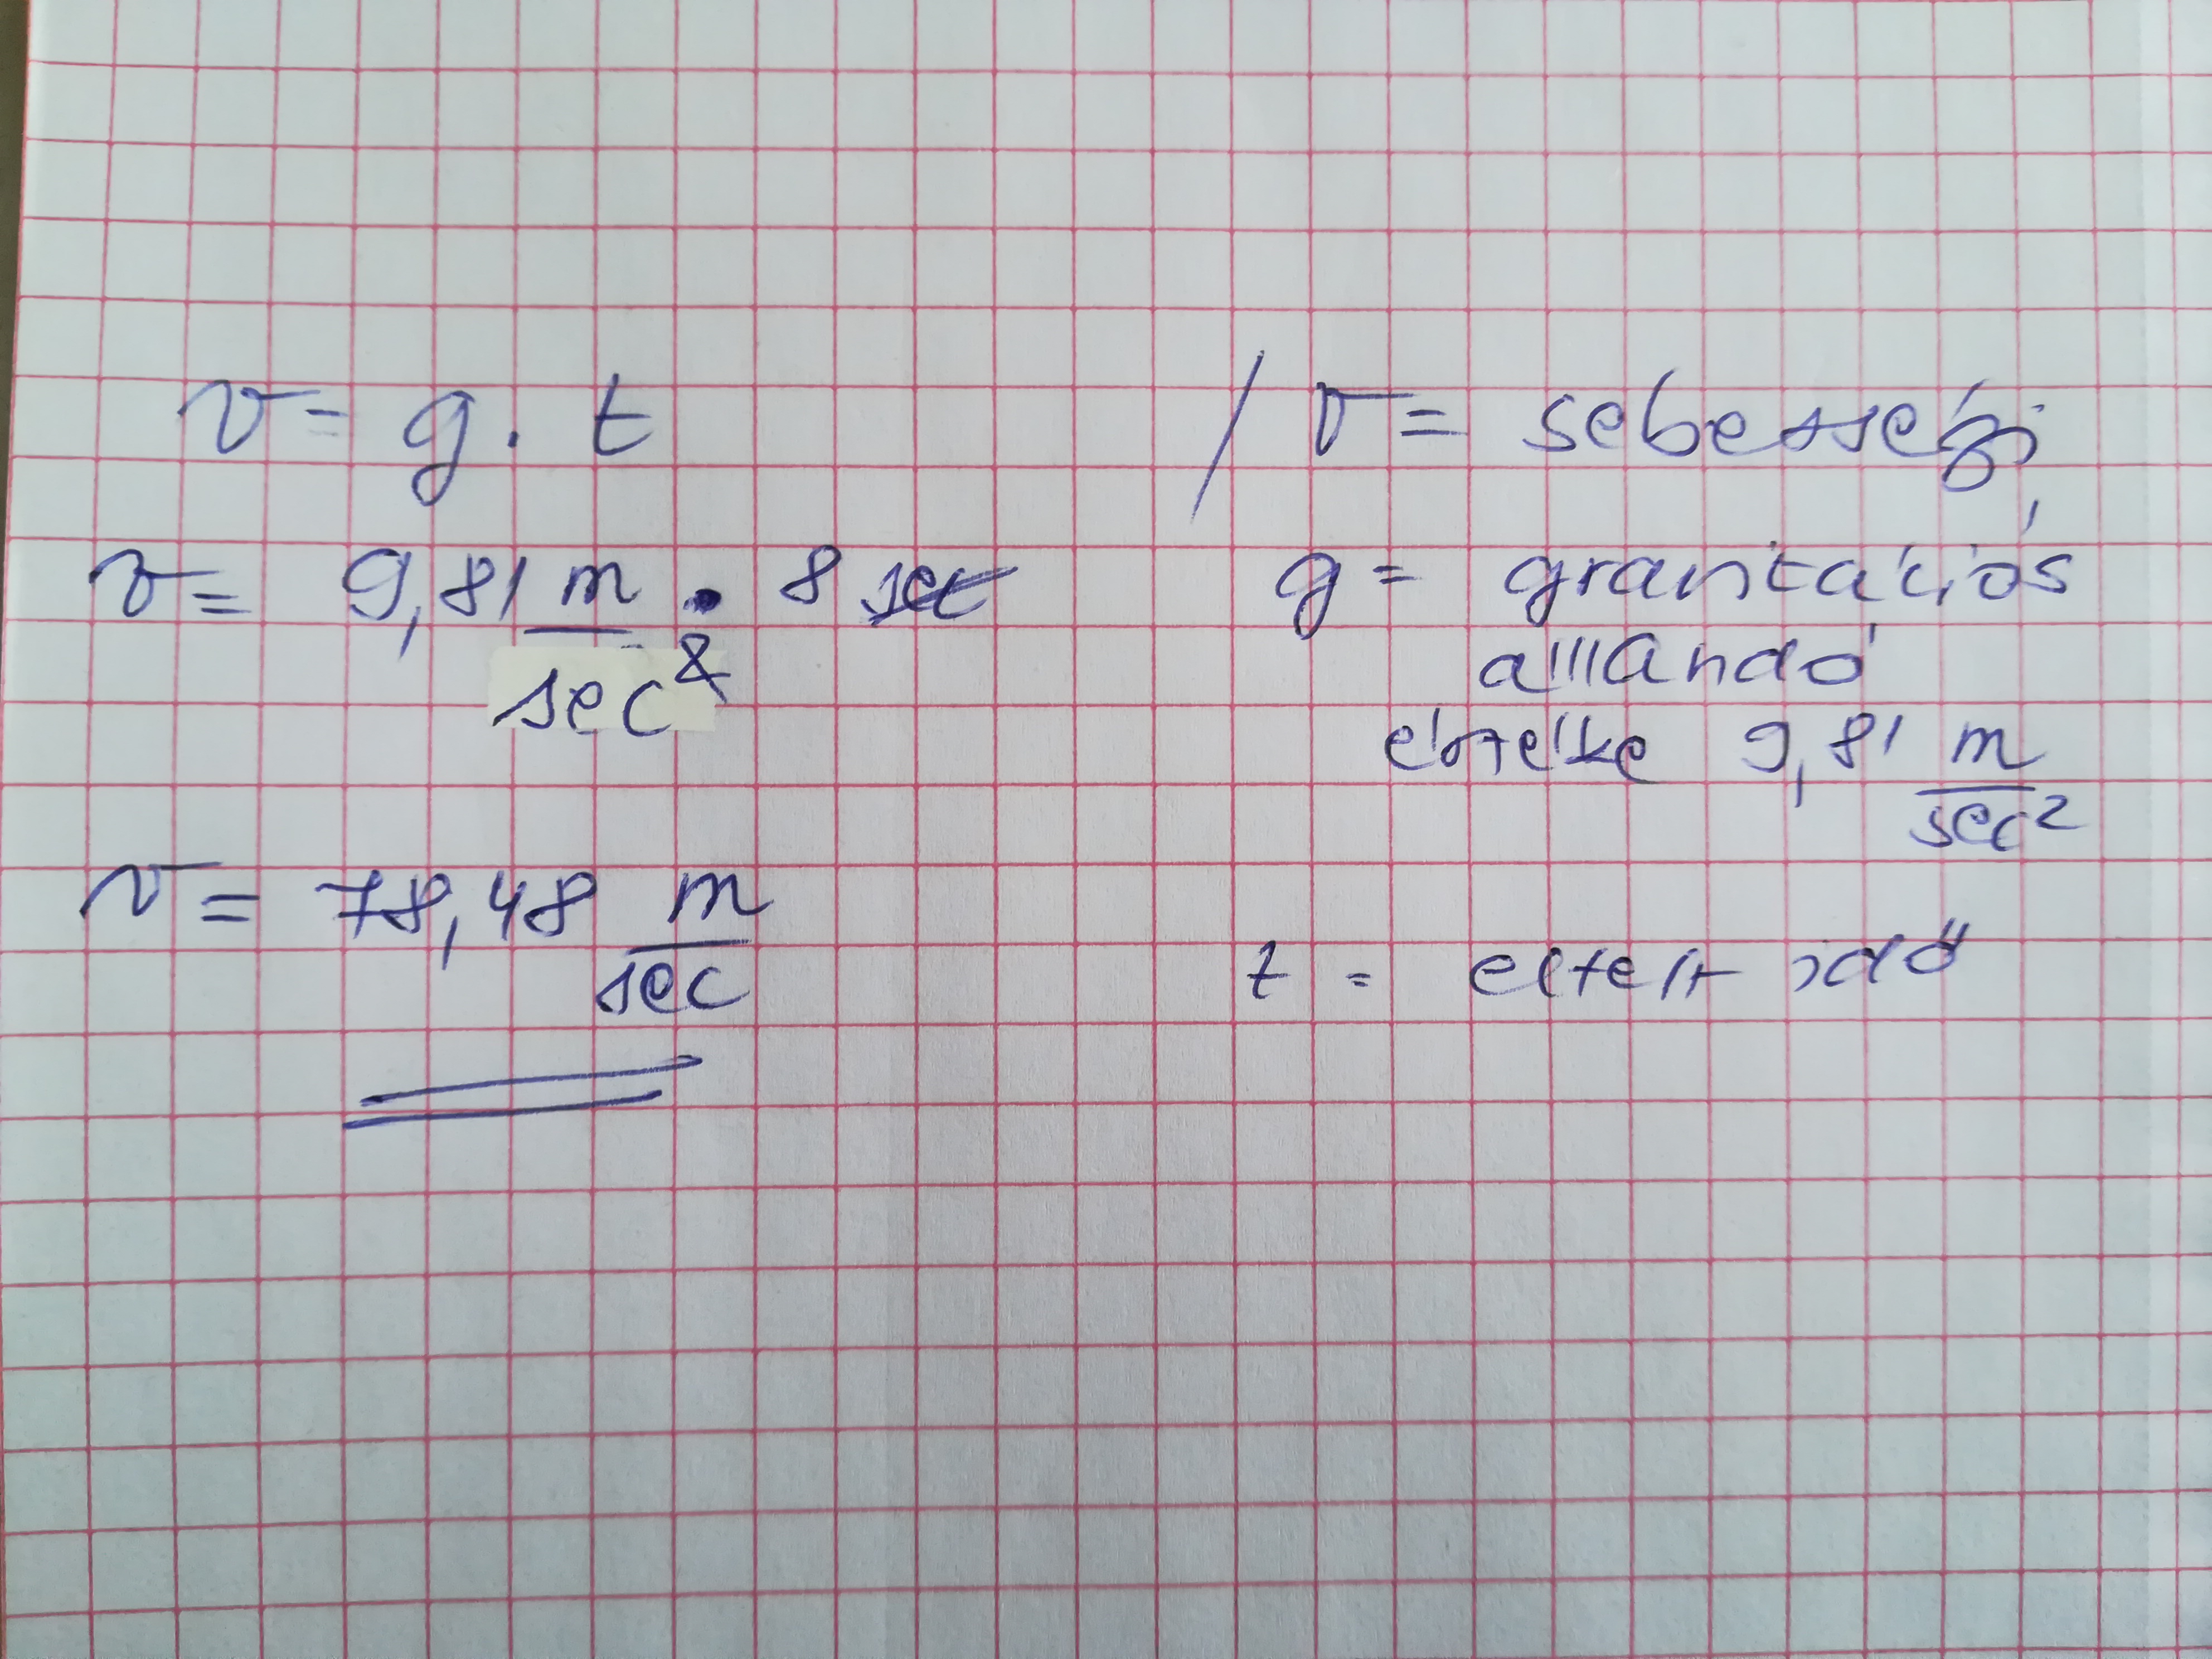 v = g . t
v = 9,81 m/sec² . 8 sec
v = 78,48 m/sec
/ v = sebesség;
g = gravitációs
állandó
értéke 9,81 m/sec²
t = eltelt idő